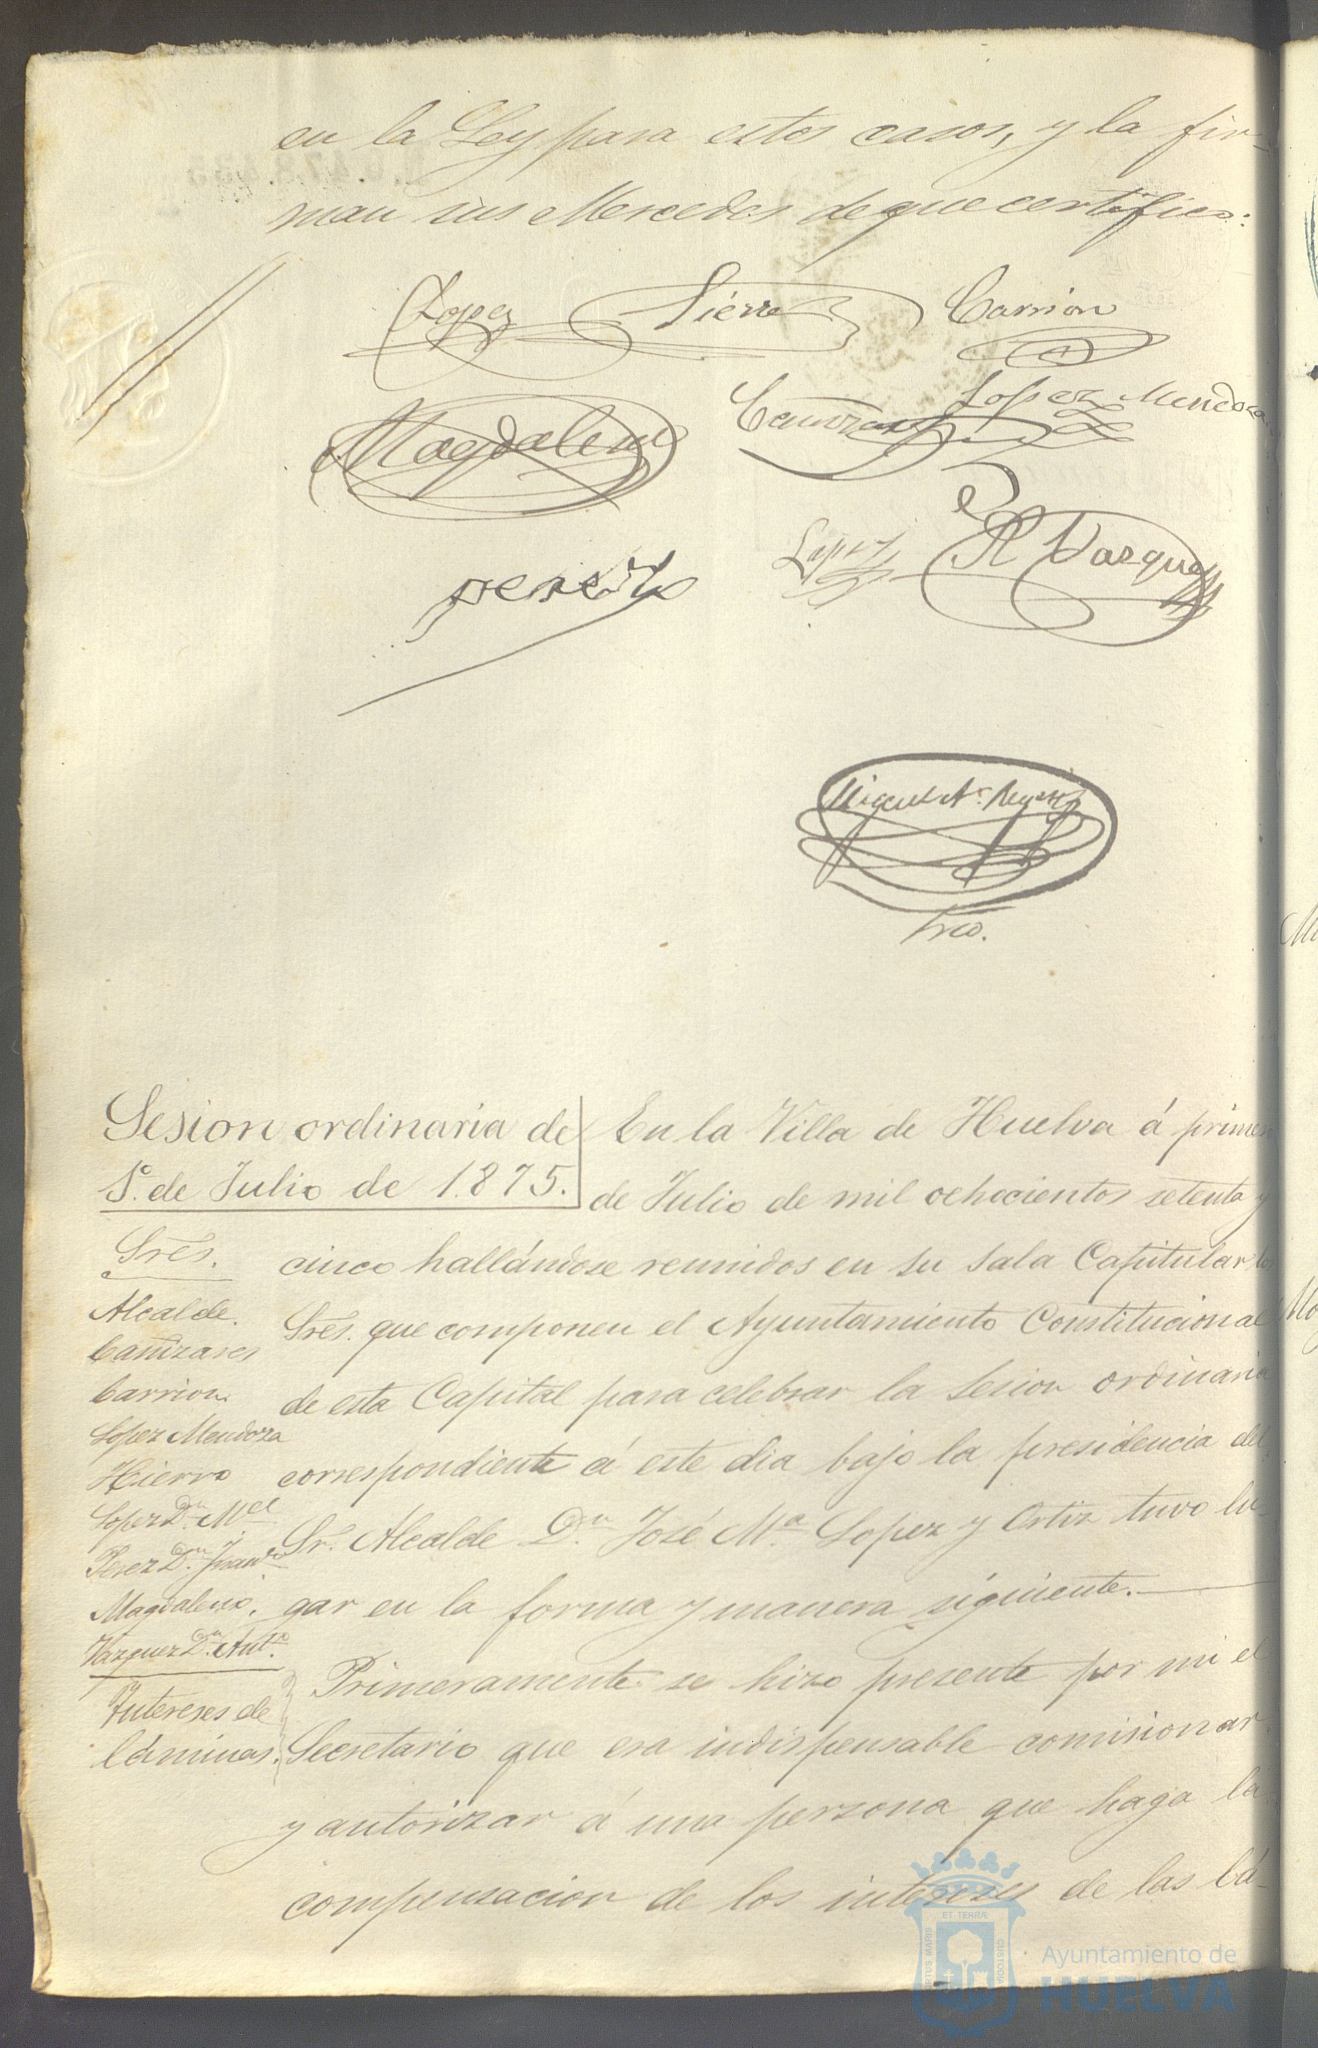 en la Ley para estos casos, y la fir-
man sus Mercedes de que certifico.
Lopez
Sierra
Carrion
Magdaleno
Cañizares
Lopez Mendoza
Lopez
R Vazquez
perez
Miguel
Srio.
Sesion ordinaria de
1º de Julio de 1.875.
Sres.
Alcalde.
Cañizares
Carrion
Lopez Mendoza
Hierro
Lopez Dn. Mel
Perez Dn. Juan
Magdaleno.
Vazquez Dn. Anto.
Intereses de
láminas.
En la Villa de Huelva á primero
de Julio de mil ochocientos setenta y
cinco hallándose reunidos en su Sala Capitular los
Sres. que componen el Ayuntamiento Constitucional
de esta Capital para celebrar la Sesion ordinaria
correspondiente á este dia bajo la presidencia del
Sr. Alcalde Dn. José Ma. Lopez y Ortiz tuvo lu-
gar en la forma y manera siguiente.
Primeramente se hizo presente por mi el
Secretario que era indispensable comisionar
y autorizar á una persona que haga la
compensacion de los intereses de las lá-
Ayuntamiento de
HUELVA